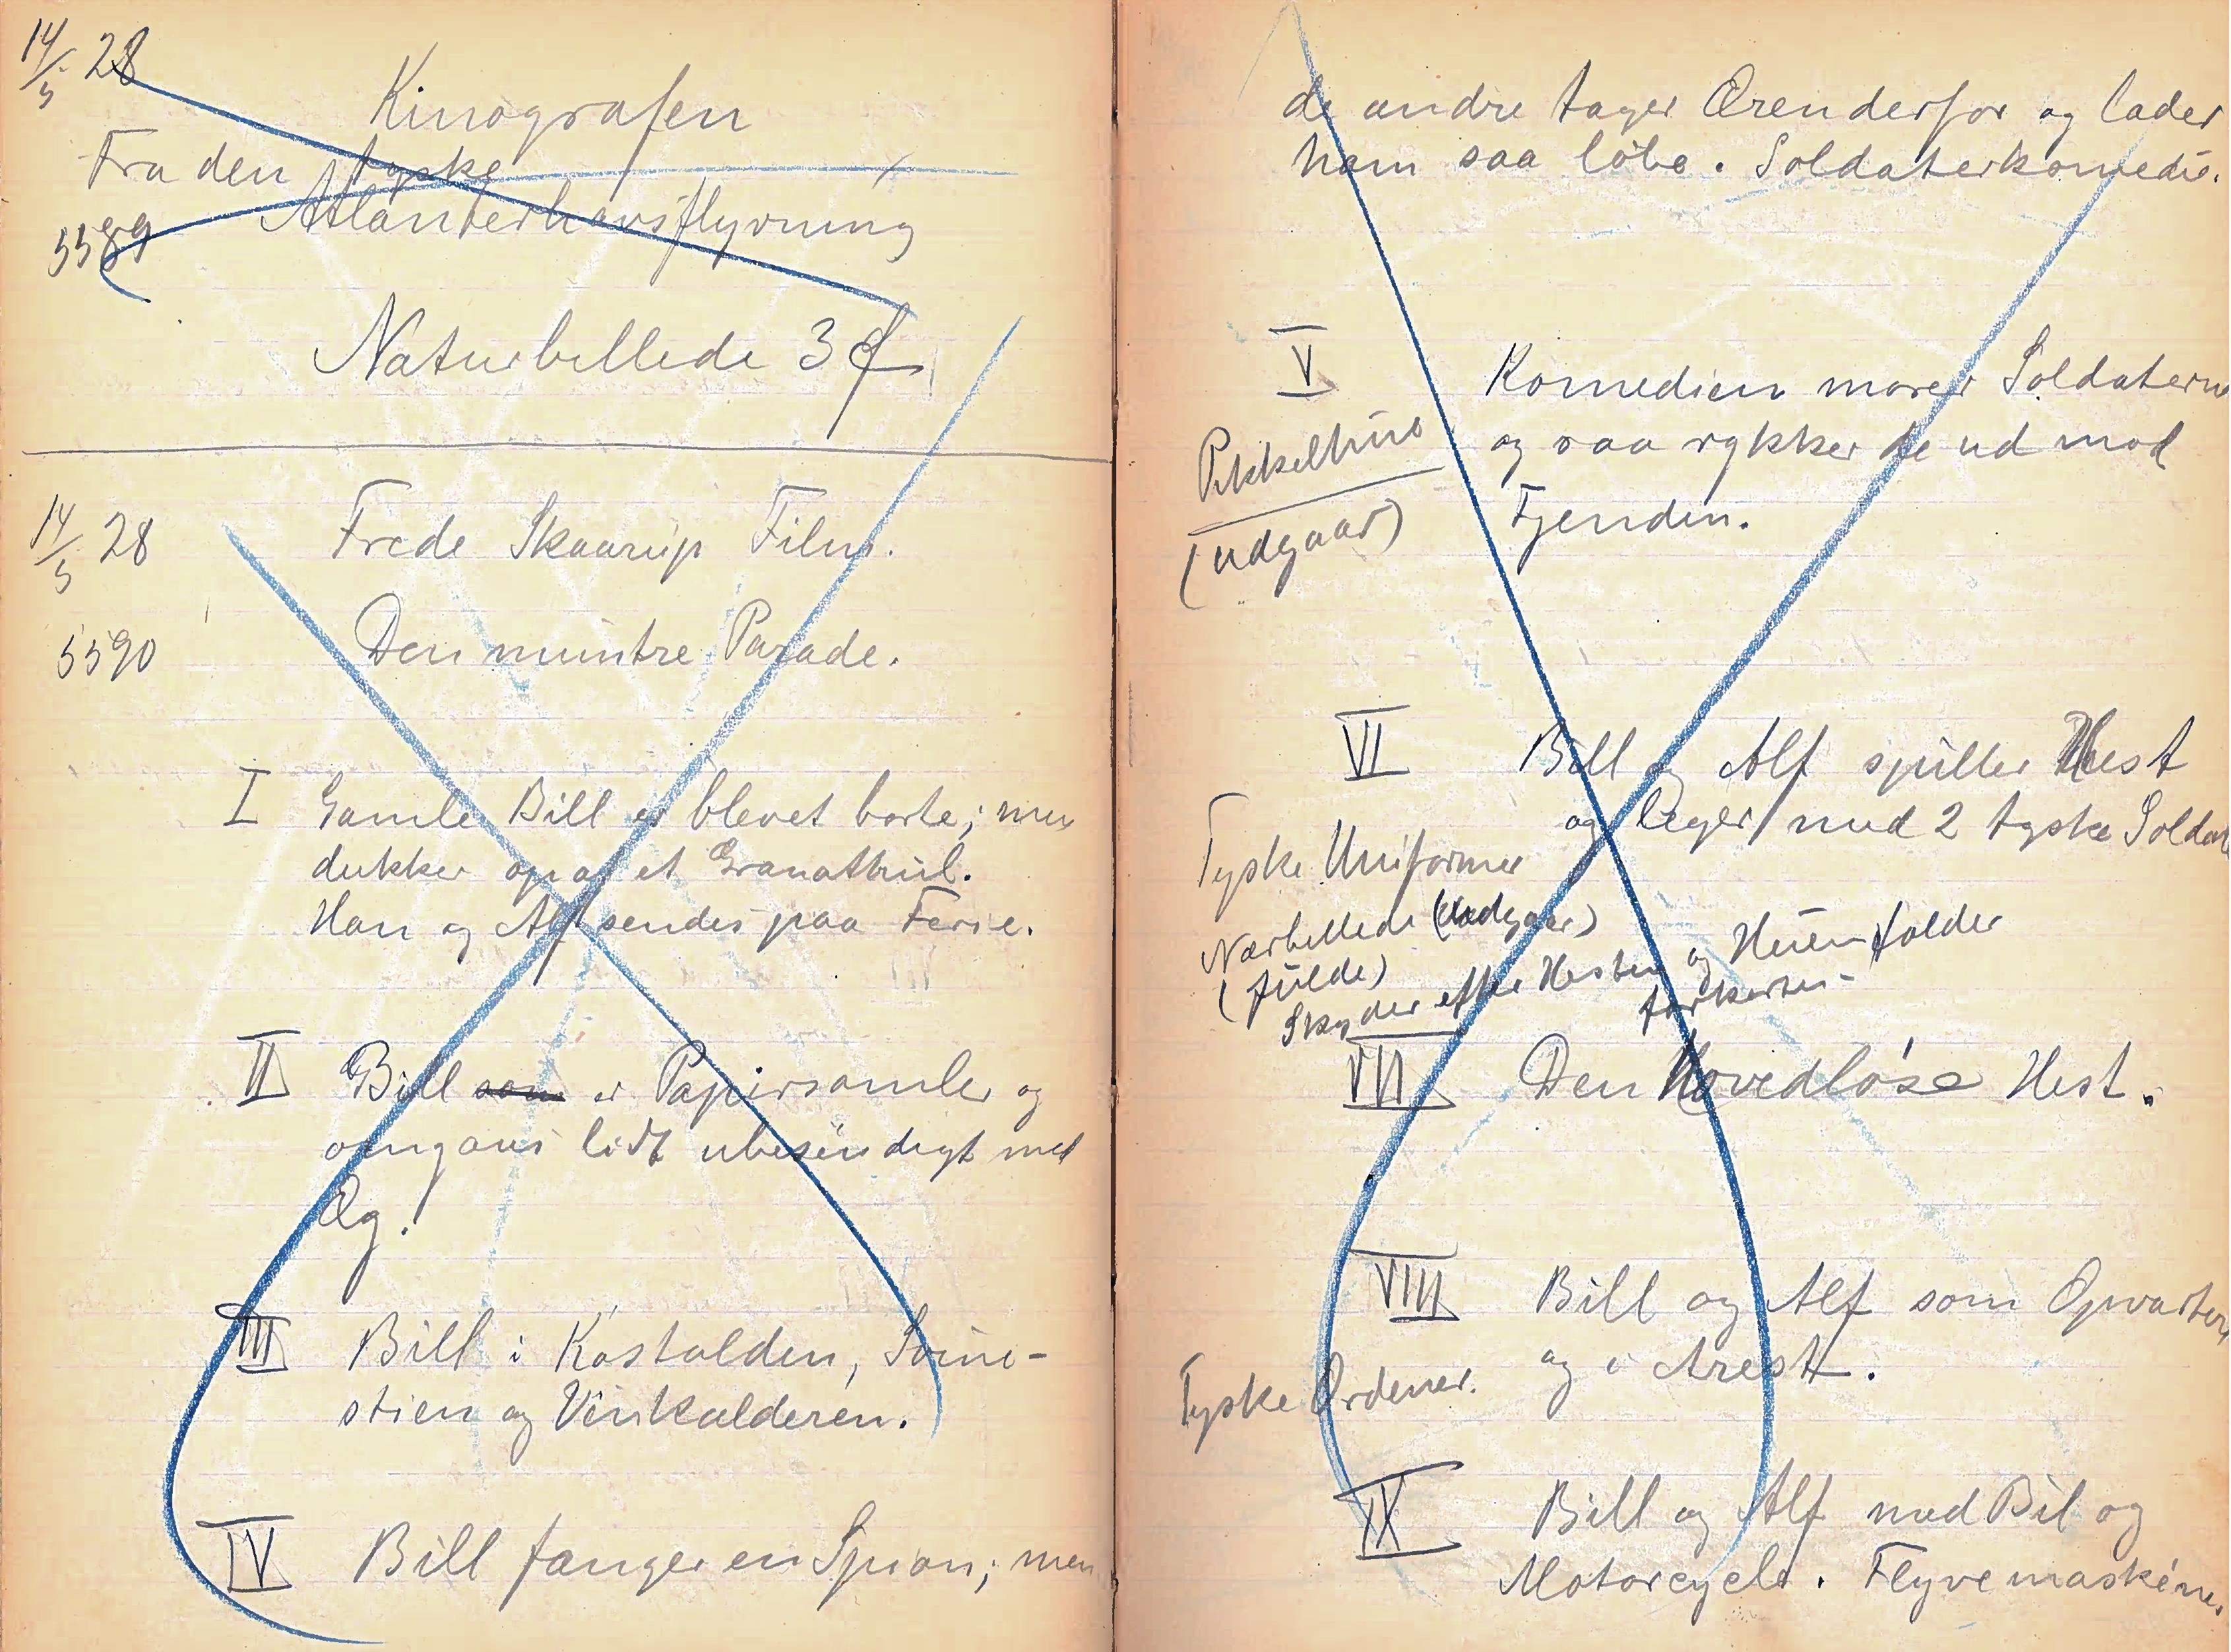 14/5 28
Kinografen
Fra den tyske
Atlanterhavsflyvning
5589
Naturbillede 3
14/5 28
Frede Skaarup Film.
5590
Den muntre Parade.
I Gamle Bill er blevet borte; men
dukker op af et Granathul.
Han og Alf sendes paa Ferie.
II Bill som er Papirsamler og
omgaas lidt ubesindigt med
Æg.
III Bill i Kostalden, Svine-
stien og Vinkælderen.
IV Bill fanger en Spion; men
de andre tager Ærenderfor og lader
ham saa løbe. Soldaterkomedie.
V Komedien morer Soldaterne
og saa rykker de ud mod
Fjenden.
Pikkelhue
(udgaar)
VI Bill og Alf spiller Hest
og leger med 2 tyske Soldater
Tyske Uniformer
Nærbillede (Udgaar)
(fulde)
Skyder efter Hesten og Huen falder
VII Den Hovedløse Hest.
VIII Bill og Alf som Opvartere
og i Arest.
Tyske Ordener.
IX Bill og Alf med Bil og
Motorcycle. Flyvemaskine.